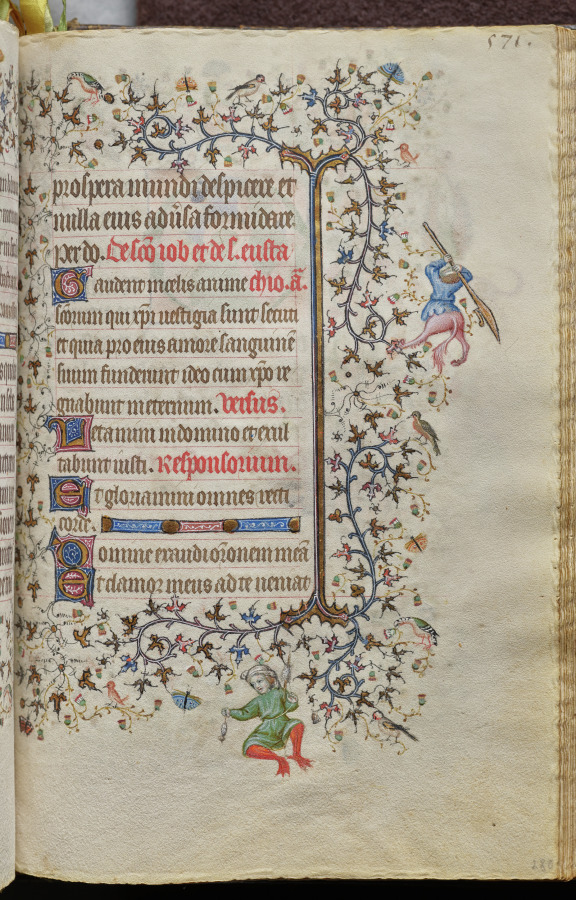 571.
prospera mundi despicere et
nulla eius adūsa formidare
perdo. De sc̄o iob et de s. eusta
Gaudent in celis anime chio. ā.
sc̄orum qui xp̄i uestigia sunt secuti
et quia pro eius amore sanguinē
suum fuderunt ideo cum xp̄o re
gnabunt in eternum. Versus.
Letamini in domino et exul
tabunt iusti. Responsorium.
Et gloriamini omnes recti
corde.
Domine exaudi or̄onem meā
Et clamor meus ad te ueniat